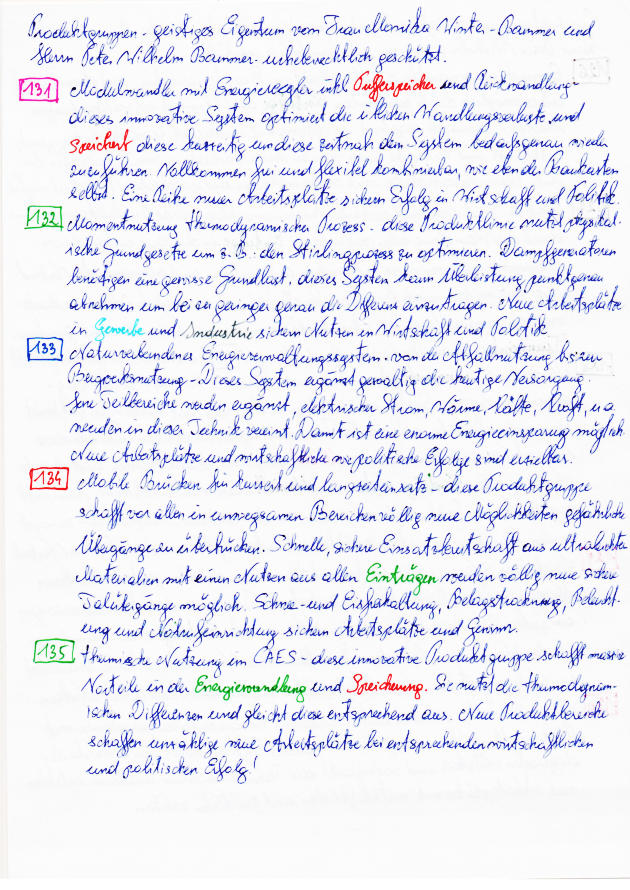 Produktgruppen - geistiges Eigentum von Frau Monika Winter-Bammer und
Herrn Peter Wilhelm Bammer - urheberrechtlich geschützt.
131 Modulwandler mit Energieregler inkl Pufferspeicher und Rückwandlung -
dieses innovative System optimiert die üblichen Wandlungsverluste und
Speichert diese kurzzeitig um diese zeitnah dem System bedarfsgenau wieder
zuzuführen. Vollkommen frei und flexibel kombinierbar, wie eben der Baukasten
selbst. Eine Reihe neuer Arbeitsplätze sichern Erfolg in Wirtschaft und Politik.
132 Momentnutzung thermodynamischer Prozess - diese Produktlinie nutzt physikal-
ische Grundgesetze um z.B. den Stirlingprozess zu optimieren. Dampfgeneratoren
benötigen eine gewisse Grundlast, dieses System kann Überleistung punktgenau
abnehmen um bei zu geringer genau die Differenz einzutragen. Neue Arbeitsplätze
in Gewerbe und Industrie sichern Nutzen in Wirtschaft und Politik
133 Naturverbundenes Energieverwaltungssystem - von der Abfallnutzung bis zur
Bergwerksnutzung - Dieses System ergänzt gewaltig die heutige Versorgung.
Jene Teilbereiche werden ergänzt, elektrischer Strom, Wärme, Kälte, Kraft, u.a.
werden in dieser Technik vereint. Damit ist eine enorme Energieeinsparung möglich.
Neue Arbeitsplätze und wirtschaftliche wie politische Erfolge sind erzielbar.
134 Mobile Brücken für kurzzeit und langzeiteinsatz - diese Produktgruppe
schafft vor allen in unwegsamen Bereichen völlig neue Möglichkeiten gefährliche
Übergänge zu überbrücken. Schnelle, sichere Einsatzbereitschaft aus ultraleichten
Materialien mit einen Nutzen aus allen Einträgen werden völlig neue sichere
Talübergänge möglich. Schnee- und Eisfreihaltung, Belagstrocknung, Beleucht-
ung und Notrufeinrichtung sichern Arbeitsplätze und Gewinn.
135 thermische Nutzung im CAES - diese innovative Produktgruppe schafft massive
Vorteile in der Energiewandlung und Speicherung. Sie nutzt die thermodynam-
ischen Differenzen und gleicht diese entsprechend aus. Neue Produktbereiche
schaffen unzählige neue Arbeitsplätze bei entsprechenden wirtschaftlichen
und politischen Erfolg!